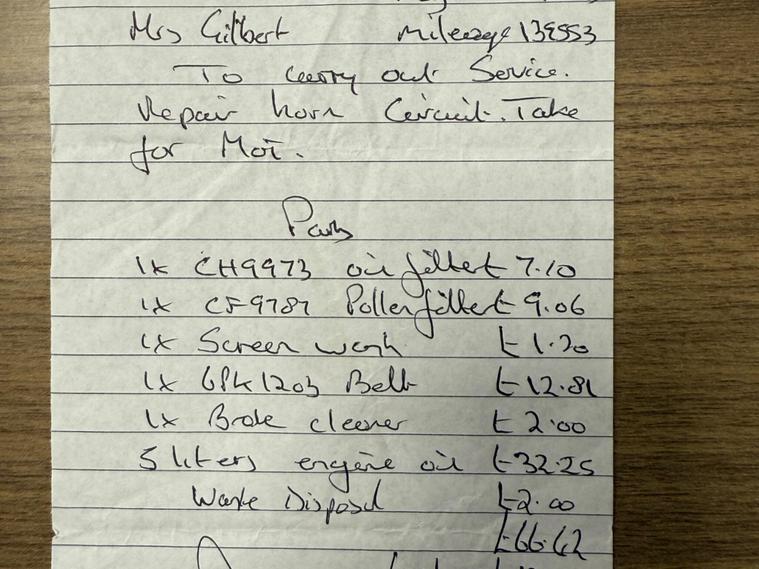 Mrs Gilbert mileage 139553
To carry out Service.
Repair horn Circuit. Take
for Mot.
Parts
1x CH9973 oil filter £ 7.10
1x CF9787 Pollen filter £ 9.06
1x Screen wash £1.20
1x 6PK1203 Belt £12.81
1x Brake cleaner £ 2.00
5 liters engine oil £32.25
Waste Disposal £2.00
£66.62